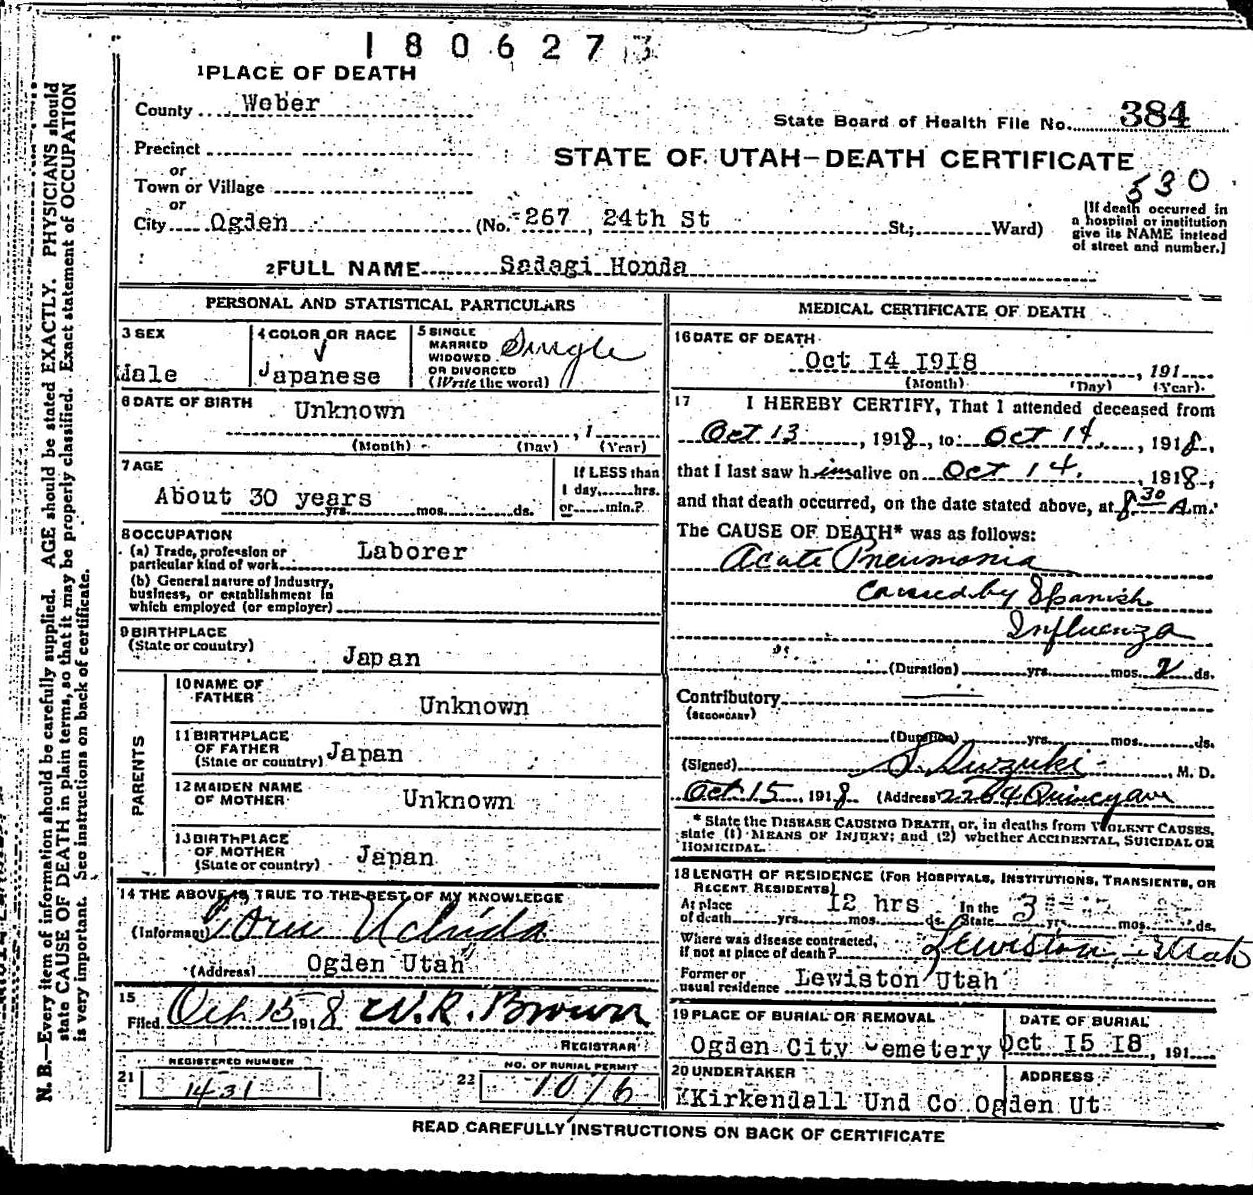 1806273
1 PLACE OF DEATH
County Weber
State Board of Health File No. 384
Precinct
STATE OF UTAH—DEATH CERTIFICATE
or
Town or Village
530
or
City Ogden (No. 267 24th St St.; Ward)
[If death occurred in
a hospital or institution
give its NAME instead
of street and number.]
2 FULL NAME Sadagi Honda
PERSONAL AND STATISTICAL PARTICULARS
3 SEX
Male
4 COLOR OR RACE
Japanese
5 SINGLE
MARRIED
WIDOWED
OR DIVORCED
(Write the word)
Single
6 DATE OF BIRTH
Unknown
, 1
(Month) (Day) (Year)
7 AGE
About 30 years
yrs. mos. ds.
If LESS than
1 day, hrs.
or min.?
8 OCCUPATION
(a) Trade, profession or
particular kind of work Laborer
(b) General nature of Industry,
business, or establishment in
which employed (or employer)
9 BIRTHPLACE
(State or country)
Japan
PARENTS
10 NAME OF
FATHER
Unknown
11 BIRTHPLACE
OF FATHER
(State or country) Japan
12 MAIDEN NAME
OF MOTHER
Unknown
13 BIRTHPLACE
OF MOTHER
(State or country) Japan
14 THE ABOVE IS TRUE TO THE BEST OF MY KNOWLEDGE
(Informant) Toru Uchida
(Address) Ogden Utah
15
Filed Oct 15 1918 W. R. Brown
REGISTRAR
REGISTERED NUMBER
21 1431
NO. OF BURIAL PERMIT
22 1076
MEDICAL CERTIFICATE OF DEATH
16 DATE OF DEATH
Oct 14 1918 , 191
(Month) (Day) (Year)
17 I HEREBY CERTIFY, That I attended deceased from
Oct 13 , 1918, to Oct 14. , 1918,
that I last saw him alive on Oct 14. 1918,
and that death occurred, on the date stated above, at 8 30 A.m.
The CAUSE OF DEATH* was as follows:
Acute Pneumonia
Caused by Spanish
Influenza
(Duration) yrs. mos. 2 ds.
Contributory
(SECONDARY)
(Duration) yrs. mos. ds.
(Signed) S. Suzuki , M. D.
Oct. 15 , 1918 (Address 2264 Quincy ave
* State the DISEASE CAUSING DEATH, or, in deaths from VIOLENT CAUSES,
state (1) MEANS OF INJURY; and (2) whether ACCIDENTAL, SUICIDAL OR
HOMICIDAL.
18 LENGTH OF RESIDENCE (FOR HOSPITALS, INSTITUTIONS, TRANSIENTS, OR
RECENT RESIDENTS)
At place 12 hrs In the 3
of death yrs. mos. ds. State yrs. mos. ds.
Where was disease contracted,
if not at place of death? Lewiston, - Utah
Former or
usual residence Lewiston Utah
19 PLACE OF BURIAL OR REMOVAL
Ogden City Cemetery
DATE OF BURIAL
Oct 15 18 , 191
20 UNDERTAKER
ADDRESS
Kirkendall Und Co Ogden Ut
READ CAREFULLY INSTRUCTIONS ON BACK OF CERTIFICATE
N. B.—Every item of information should be carefully supplied. AGE should be stated EXACTLY. PHYSICIANS should
state CAUSE OF DEATH in plain terms, so that it may be properly classified. Exact statement of OCCUPATION
is very important. See instructions on back of certificate.